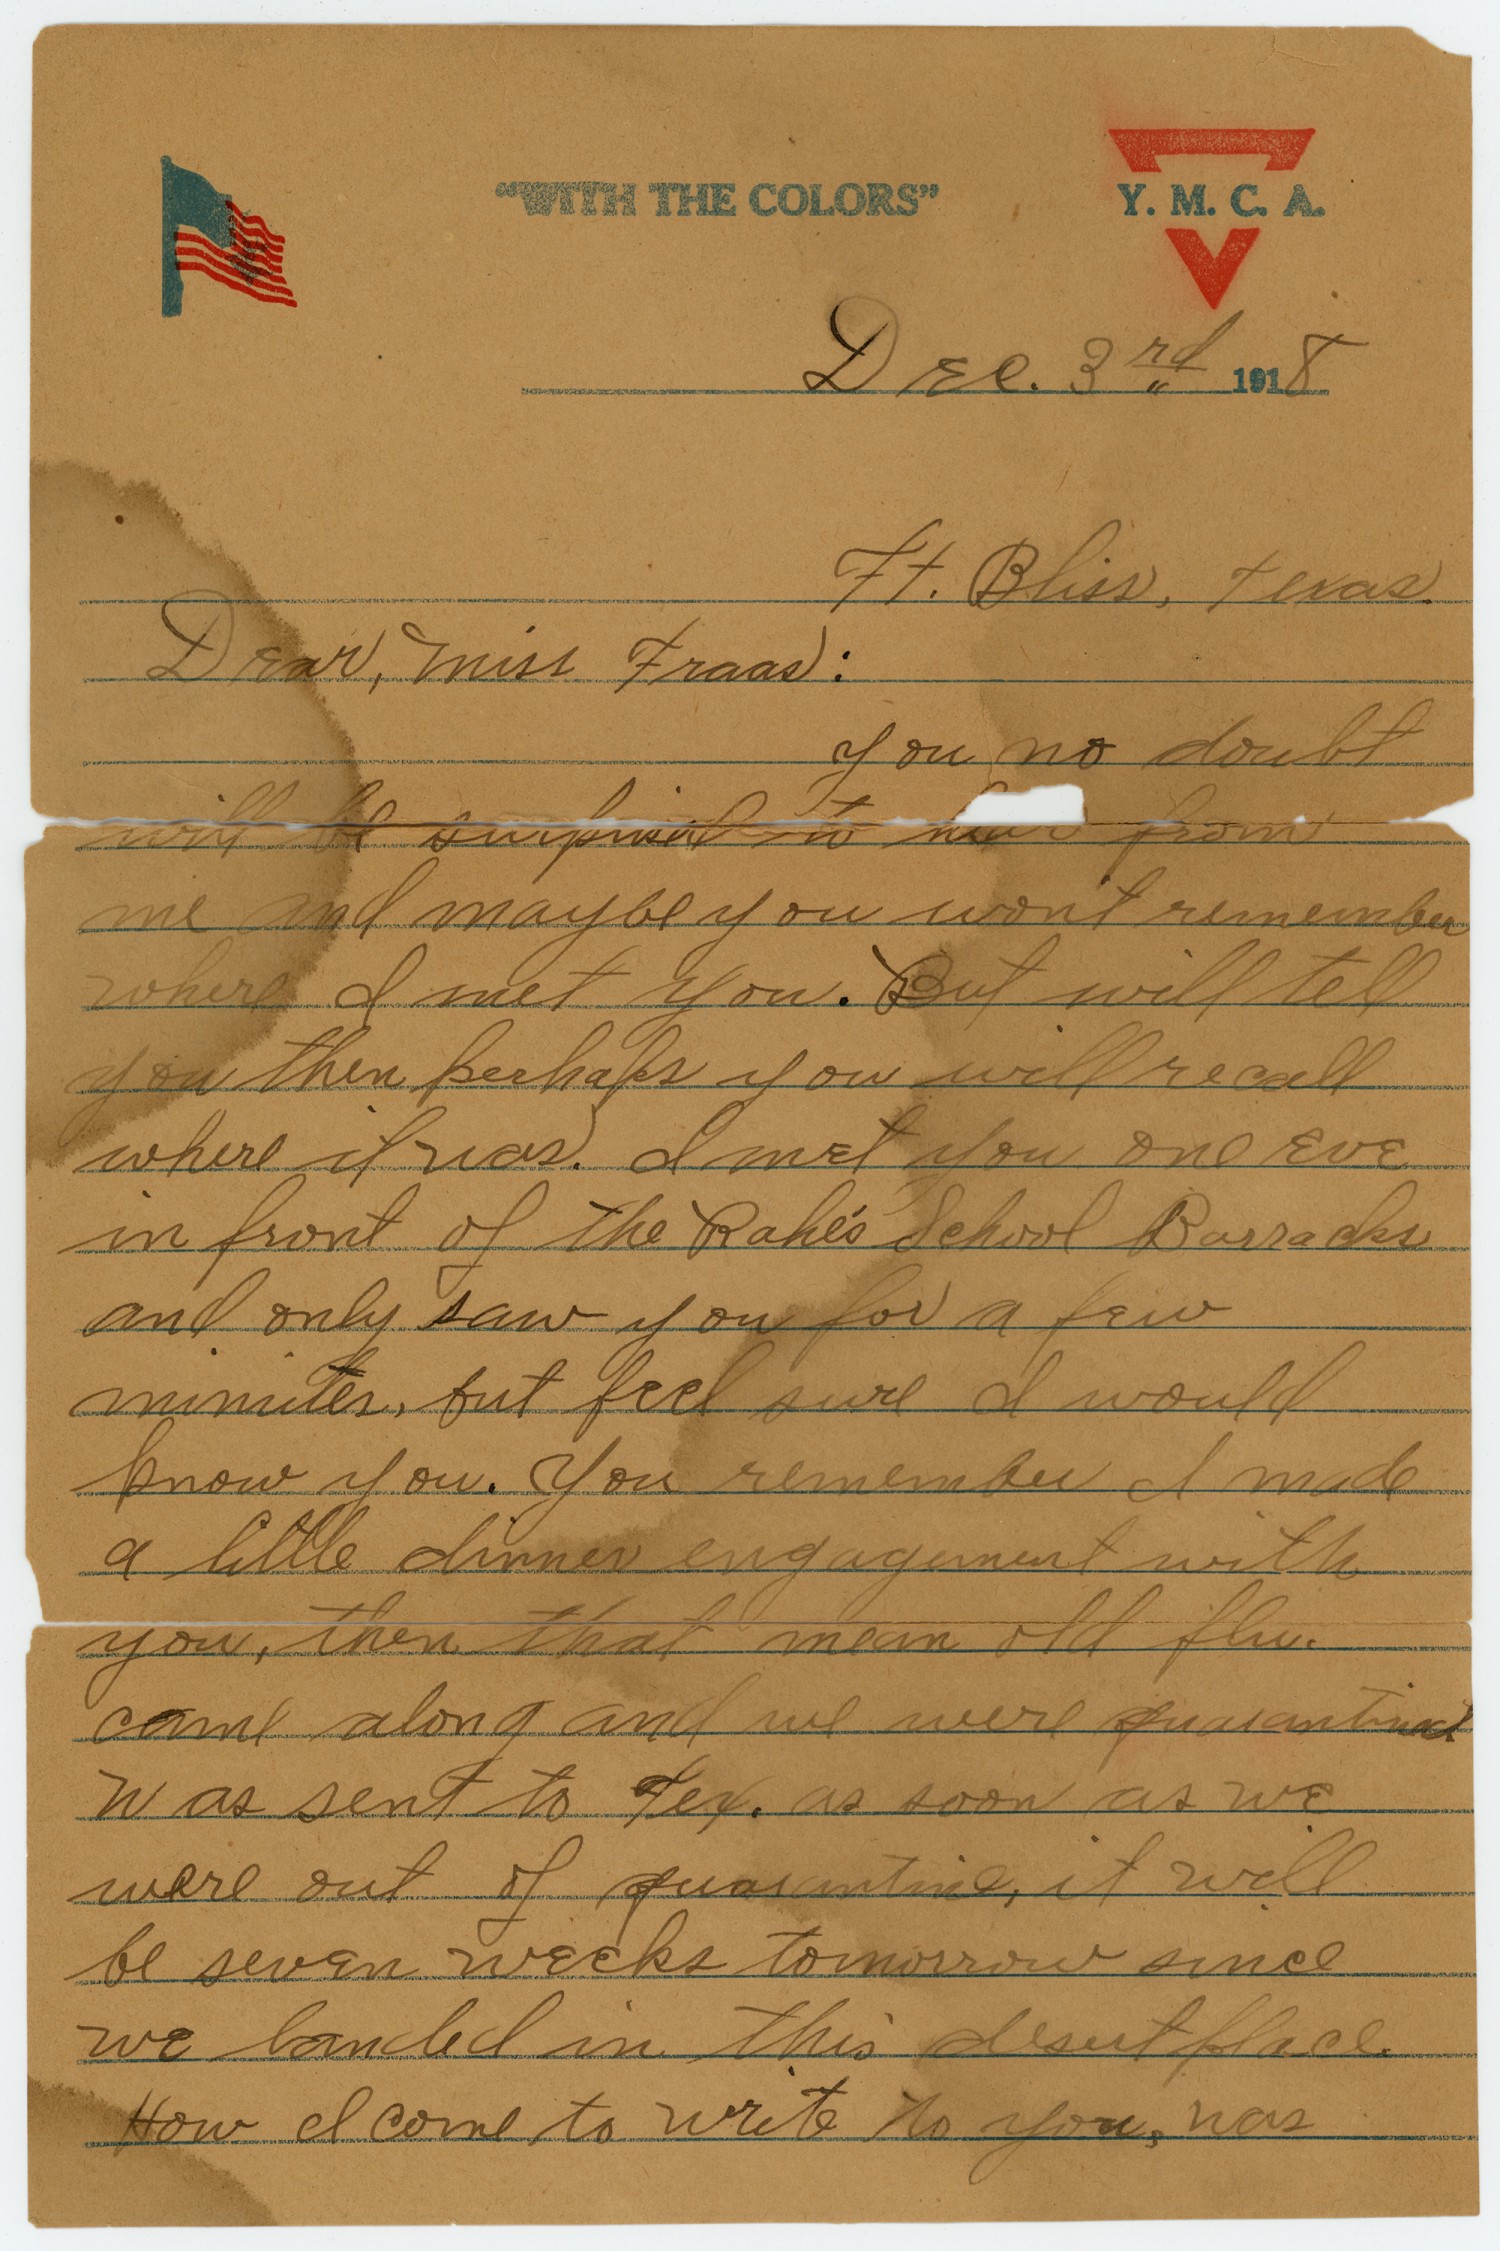 "WITH THE COLORS"
Y. M. C. A.
Dec. 3rd 1918
Ft. Bliss, Texas.
Dear, Miss Fraas:
you no doubt
will be surprised to hear from
me and maybe you wont remember
where I met you. But will tell
you then perhaps you will recall
where it was. I met you one eve
in front of the Rahe's School Barracks
and only saw you for a few
minutes, but feel sure I would
know you. You remember I made
a little dinner engagement with
you, then that mean old flu.
came along and we were quarantined
was sent to Tex. as soon as we
were out of quarantine, it will
be seven weeks tomorrow since
we landed in this desert place.
How I come to write to you, was